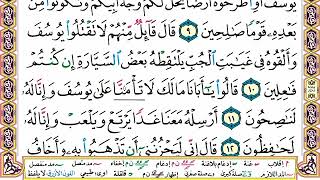 يُوسُفَ أَوِ ٱطْرَحُوهُ أَرْضًا يَخْلُ لَكُمْ وَجْهُ أَبِيكُمْ وَتَكُونُوا۟ مِنۢ
بَعْدِهِۦ قَوْمًا صَٰلِحِينَ ٩ قَالَ قَآئِلٌ مِّنْهُمْ لَا تَقْتُلُوا۟ يُوسُفَ
وَأَلْقُوهُ فِى غَيَٰبَتِ ٱلْجُبِّ يَلْتَقِطْهُ بَعْضُ ٱلسَّيَّارَةِ إِن كُنتُمْ
فَٰعِلِينَ ١٠ قَالُوا۟ يَٰٓأَبَانَا مَالَكَ لَا تَأْمَ۫نَّا عَلَىٰ يُوسُفَ وَإِنَّا لَهُۥ
لَنَٰصِحُونَ ١١ أَرْسِلْهُ مَعَنَا غَدًا يَرْتَعْ وَيَلْعَبْ وَإِنَّا لَهُۥ
لَحَٰفِظُونَ ١٢ قَالَ إِنِّى لَيَحْزُنُنِىٓ أَن تَذْهَبُوا۟ بِهِۦ وَأَخَافُ